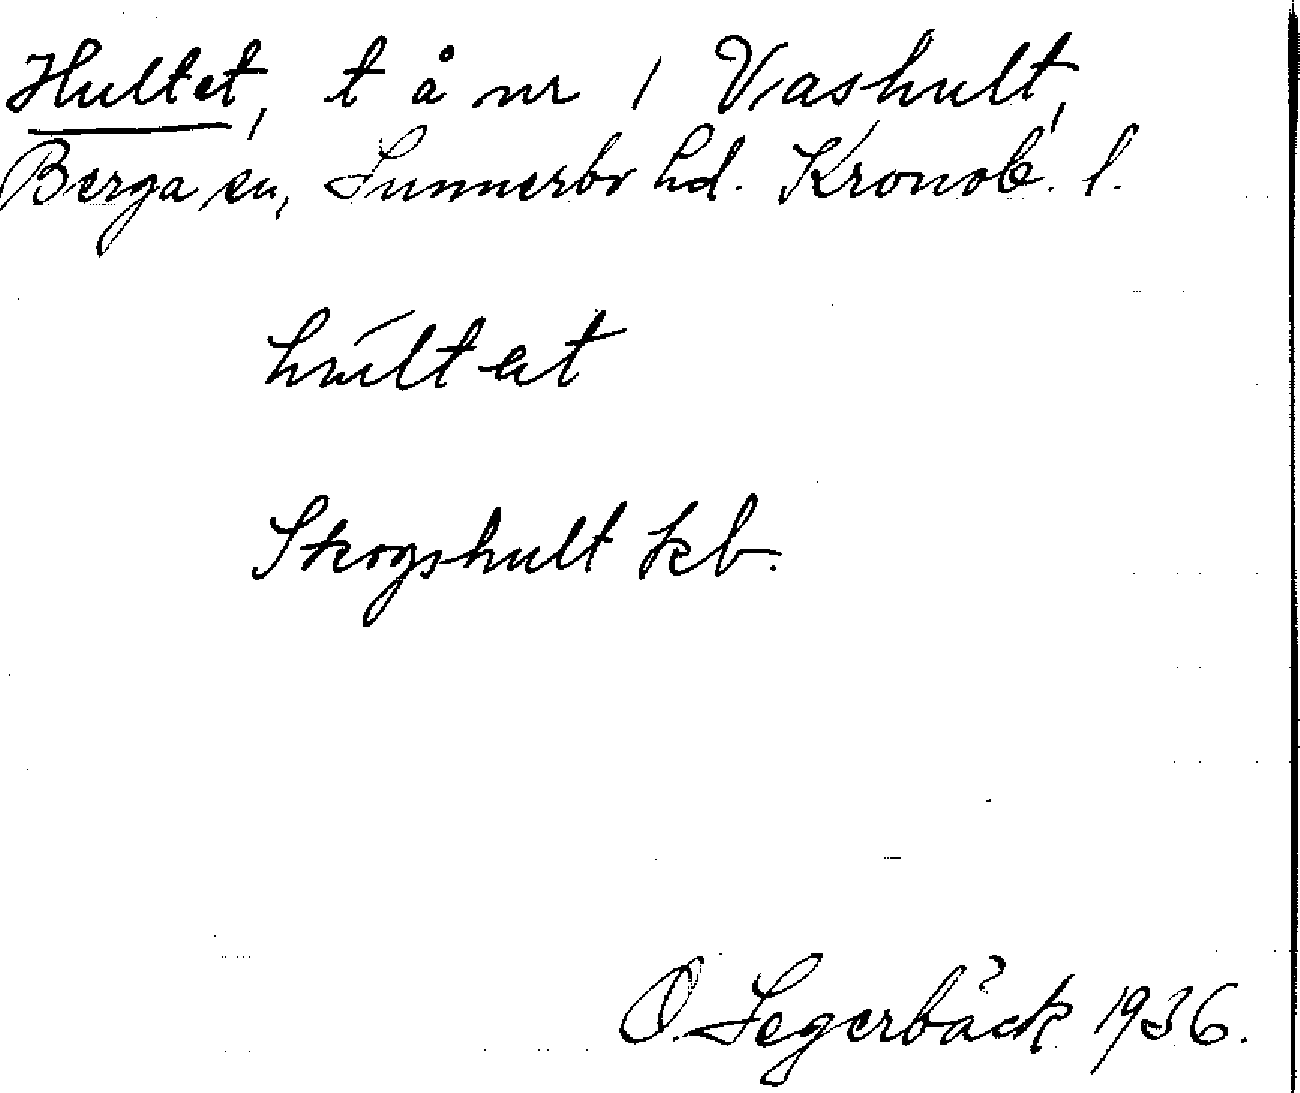 Hultet, t å nr 1 Vashult,
Berga sn, Sunnerbo hd. Kronob. l.
húltət
Skogshult kb.
O. Segerbäck 1936.